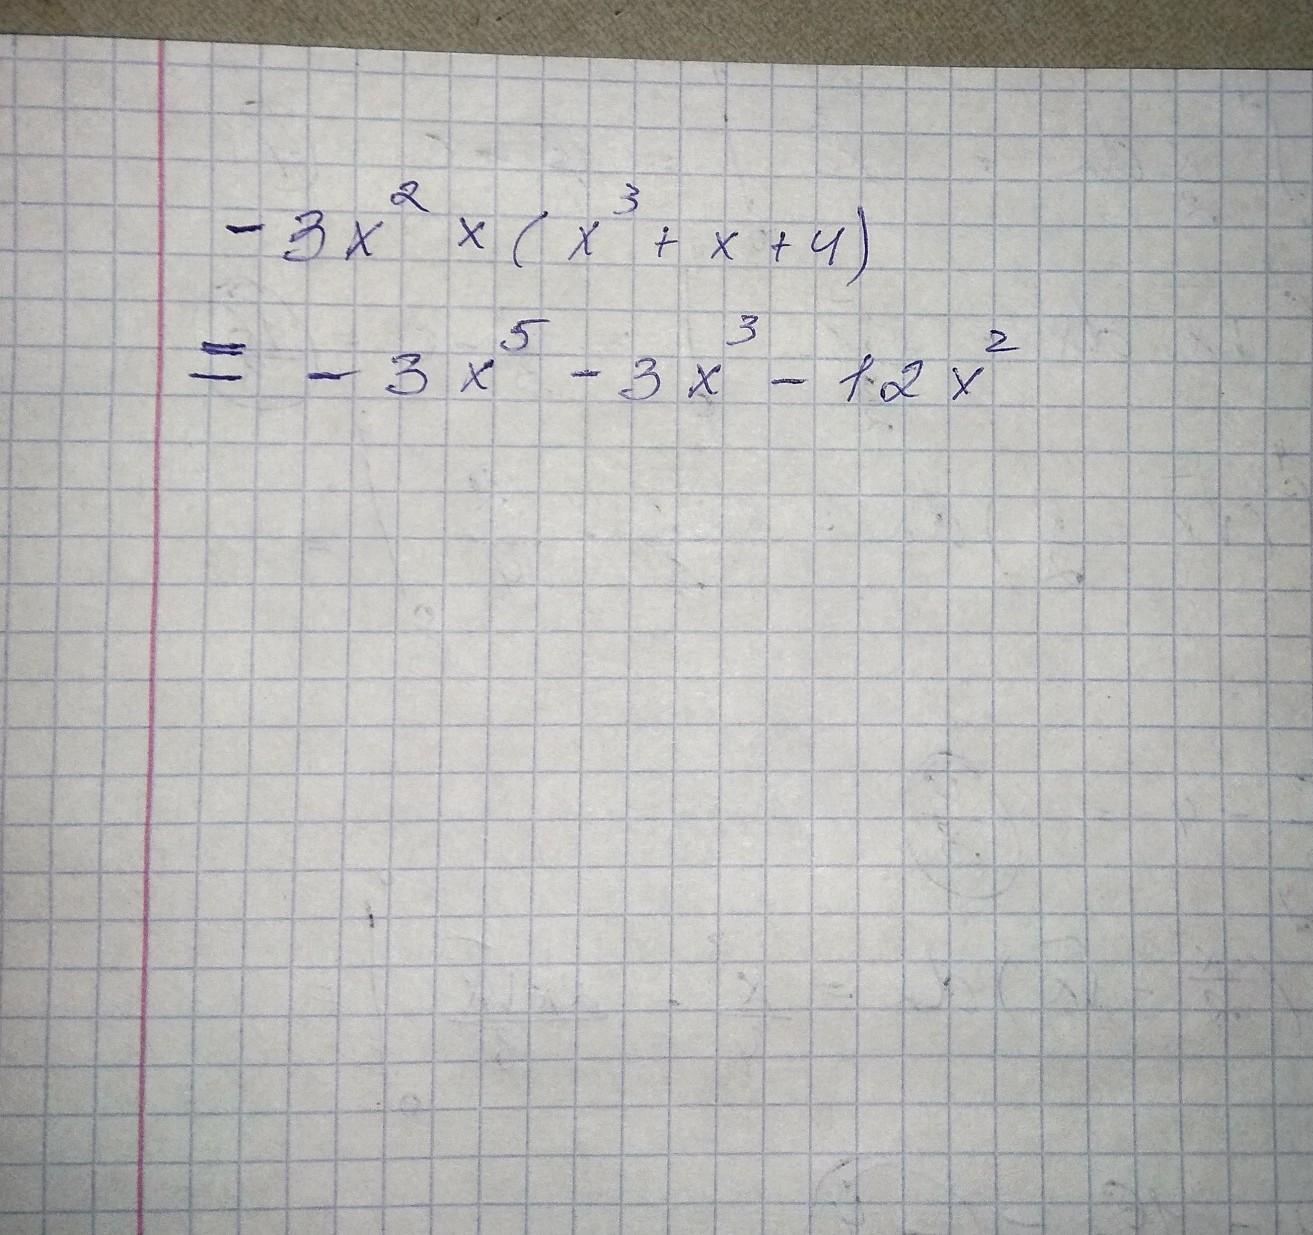 -3x² x (x³ + x + 4)
= -3x⁵ - 3x³ - 12x²